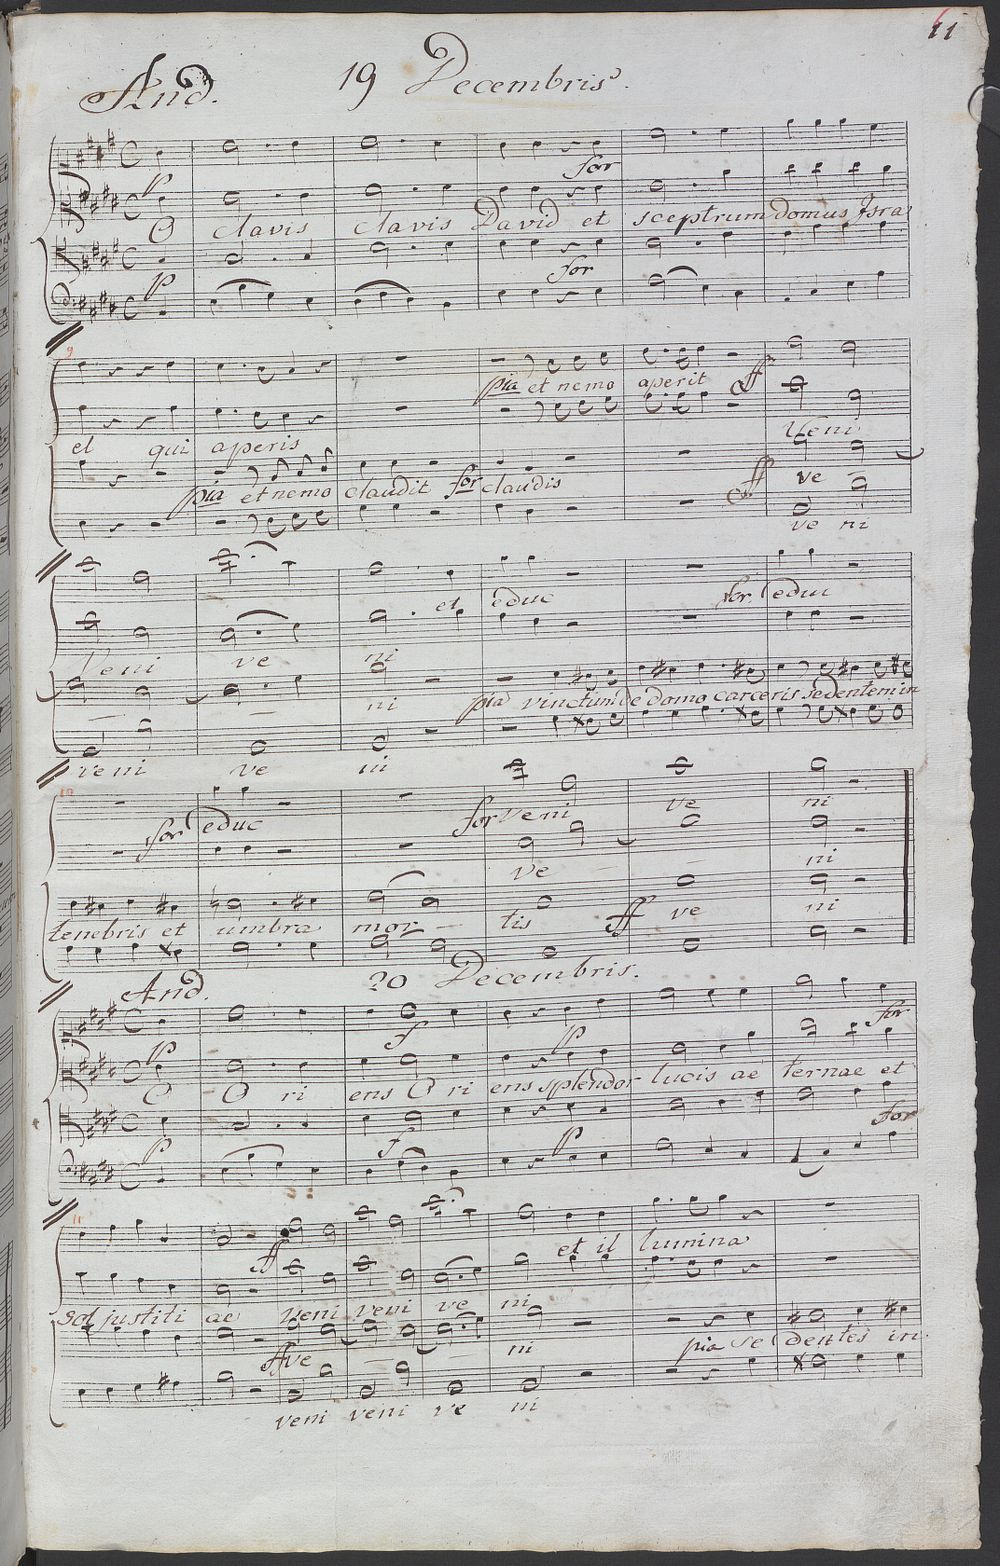 11
And. 19 Decembris.
for
p
O clavis clavis David et sceptrum domus Isra
for
p
9
pia et nemo aperit ff
el qui aperis Veni
pia et nemo claudit for claudis ff ve
ve ni
et educ for educ
Veni ve ni
ni pia vinctum de domo carceris sedentem in
veni ve ni
10
for educ for veni ve ni
ve ni
tenebris et umbra mor tis ff ve ni
And. 20 Decembris.
f p for
p
O O ri ens O ri ens splendor lucis ae ternae et
p f p for
11
ff et il lumina
sol justiti ae veni veni ve ni
ff ve ni pia se dentes in
veni veni ve ni